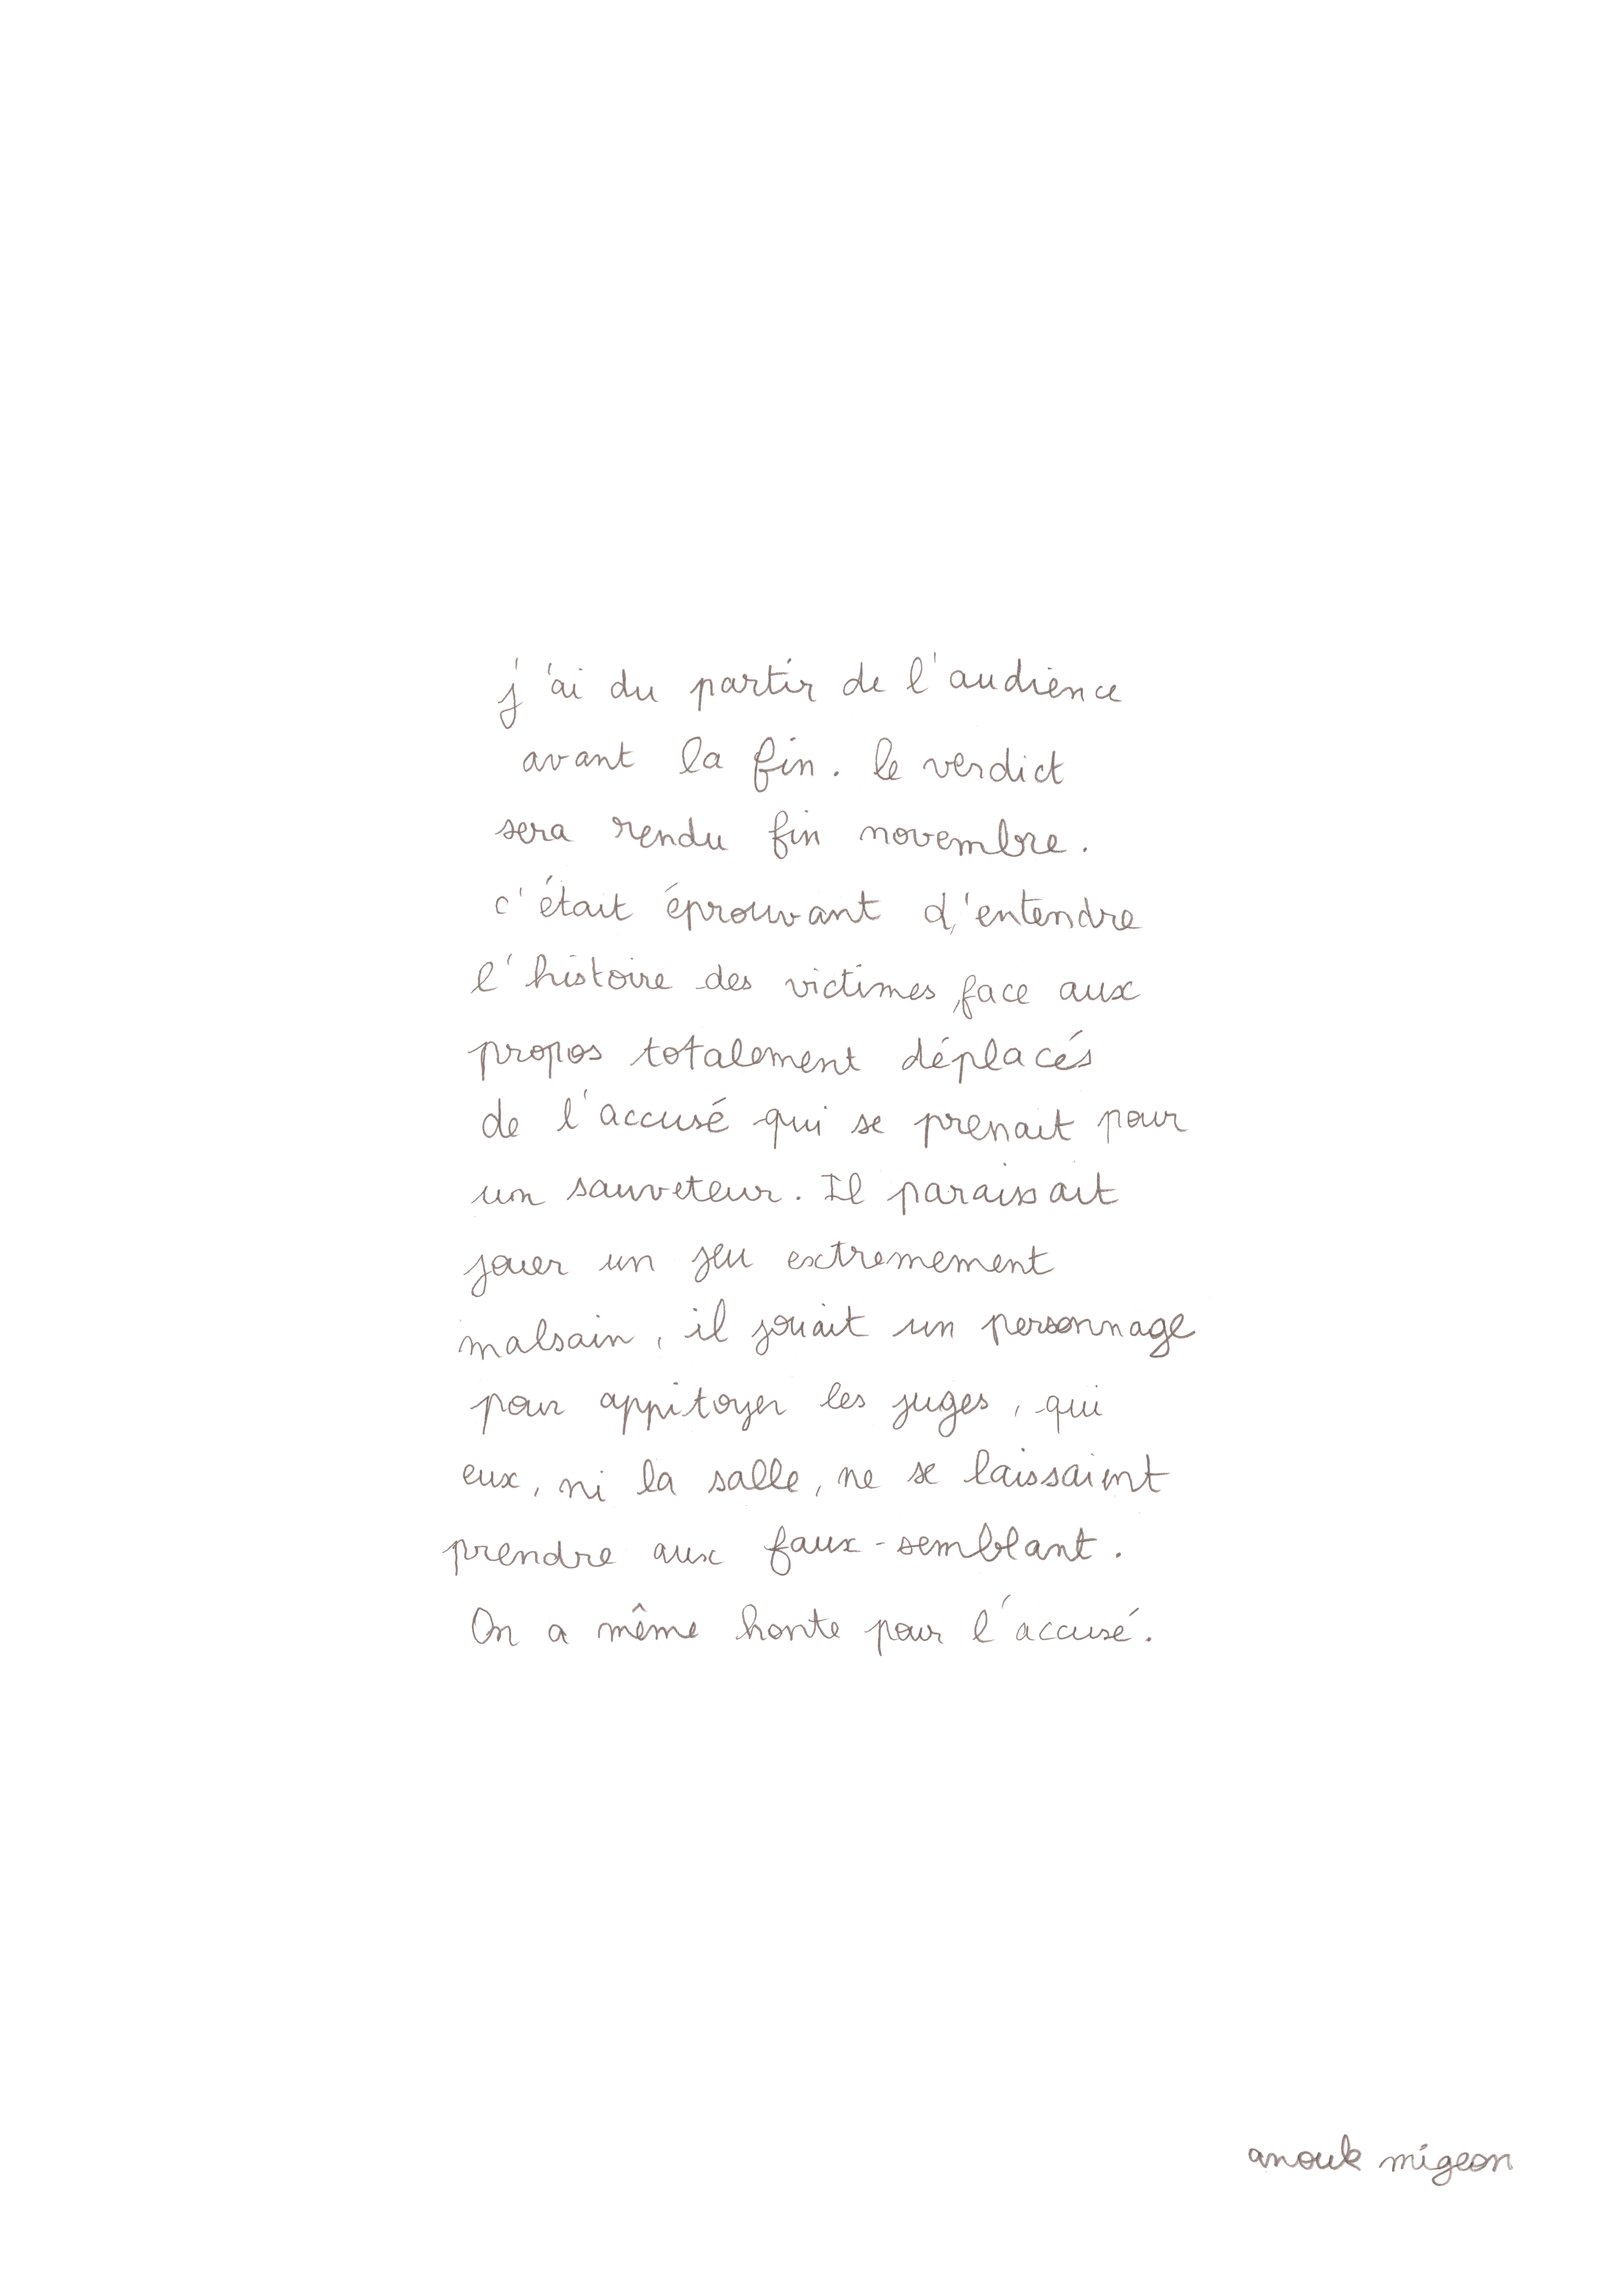 j'ai du partir de l'audience
avant la fin. le verdict
sera rendu fin novembre.
c'était éprouvant d'entendre
l'histoire des victimes face aux
propos totalement déplacés
de l'accusé qui se prenait pour
un sauveteur. Il paraissait
jouer un jeu extremement
malsain, il jouait un personnage
pour appitoyer les juges, qui
eux, ni la salle, ne se laissaient
prendre aux faux-semblant.
On a même honte pour l'accusé.
anouk migeon